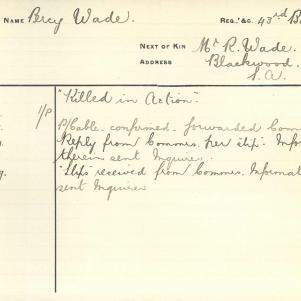 NAME Percy Wade. REG., &C. 43rd B
NEXT OF KIN Mr R. Wade.
ADDRESS Blackwood.
S.A.
"Killed in Action".
1/P P/Cable. confirmed. forwarded Com
Reply from Commrs. per slip. Infor
therein sent Inquirer.
Slips received from Commrs. Informat
sent Inquirer